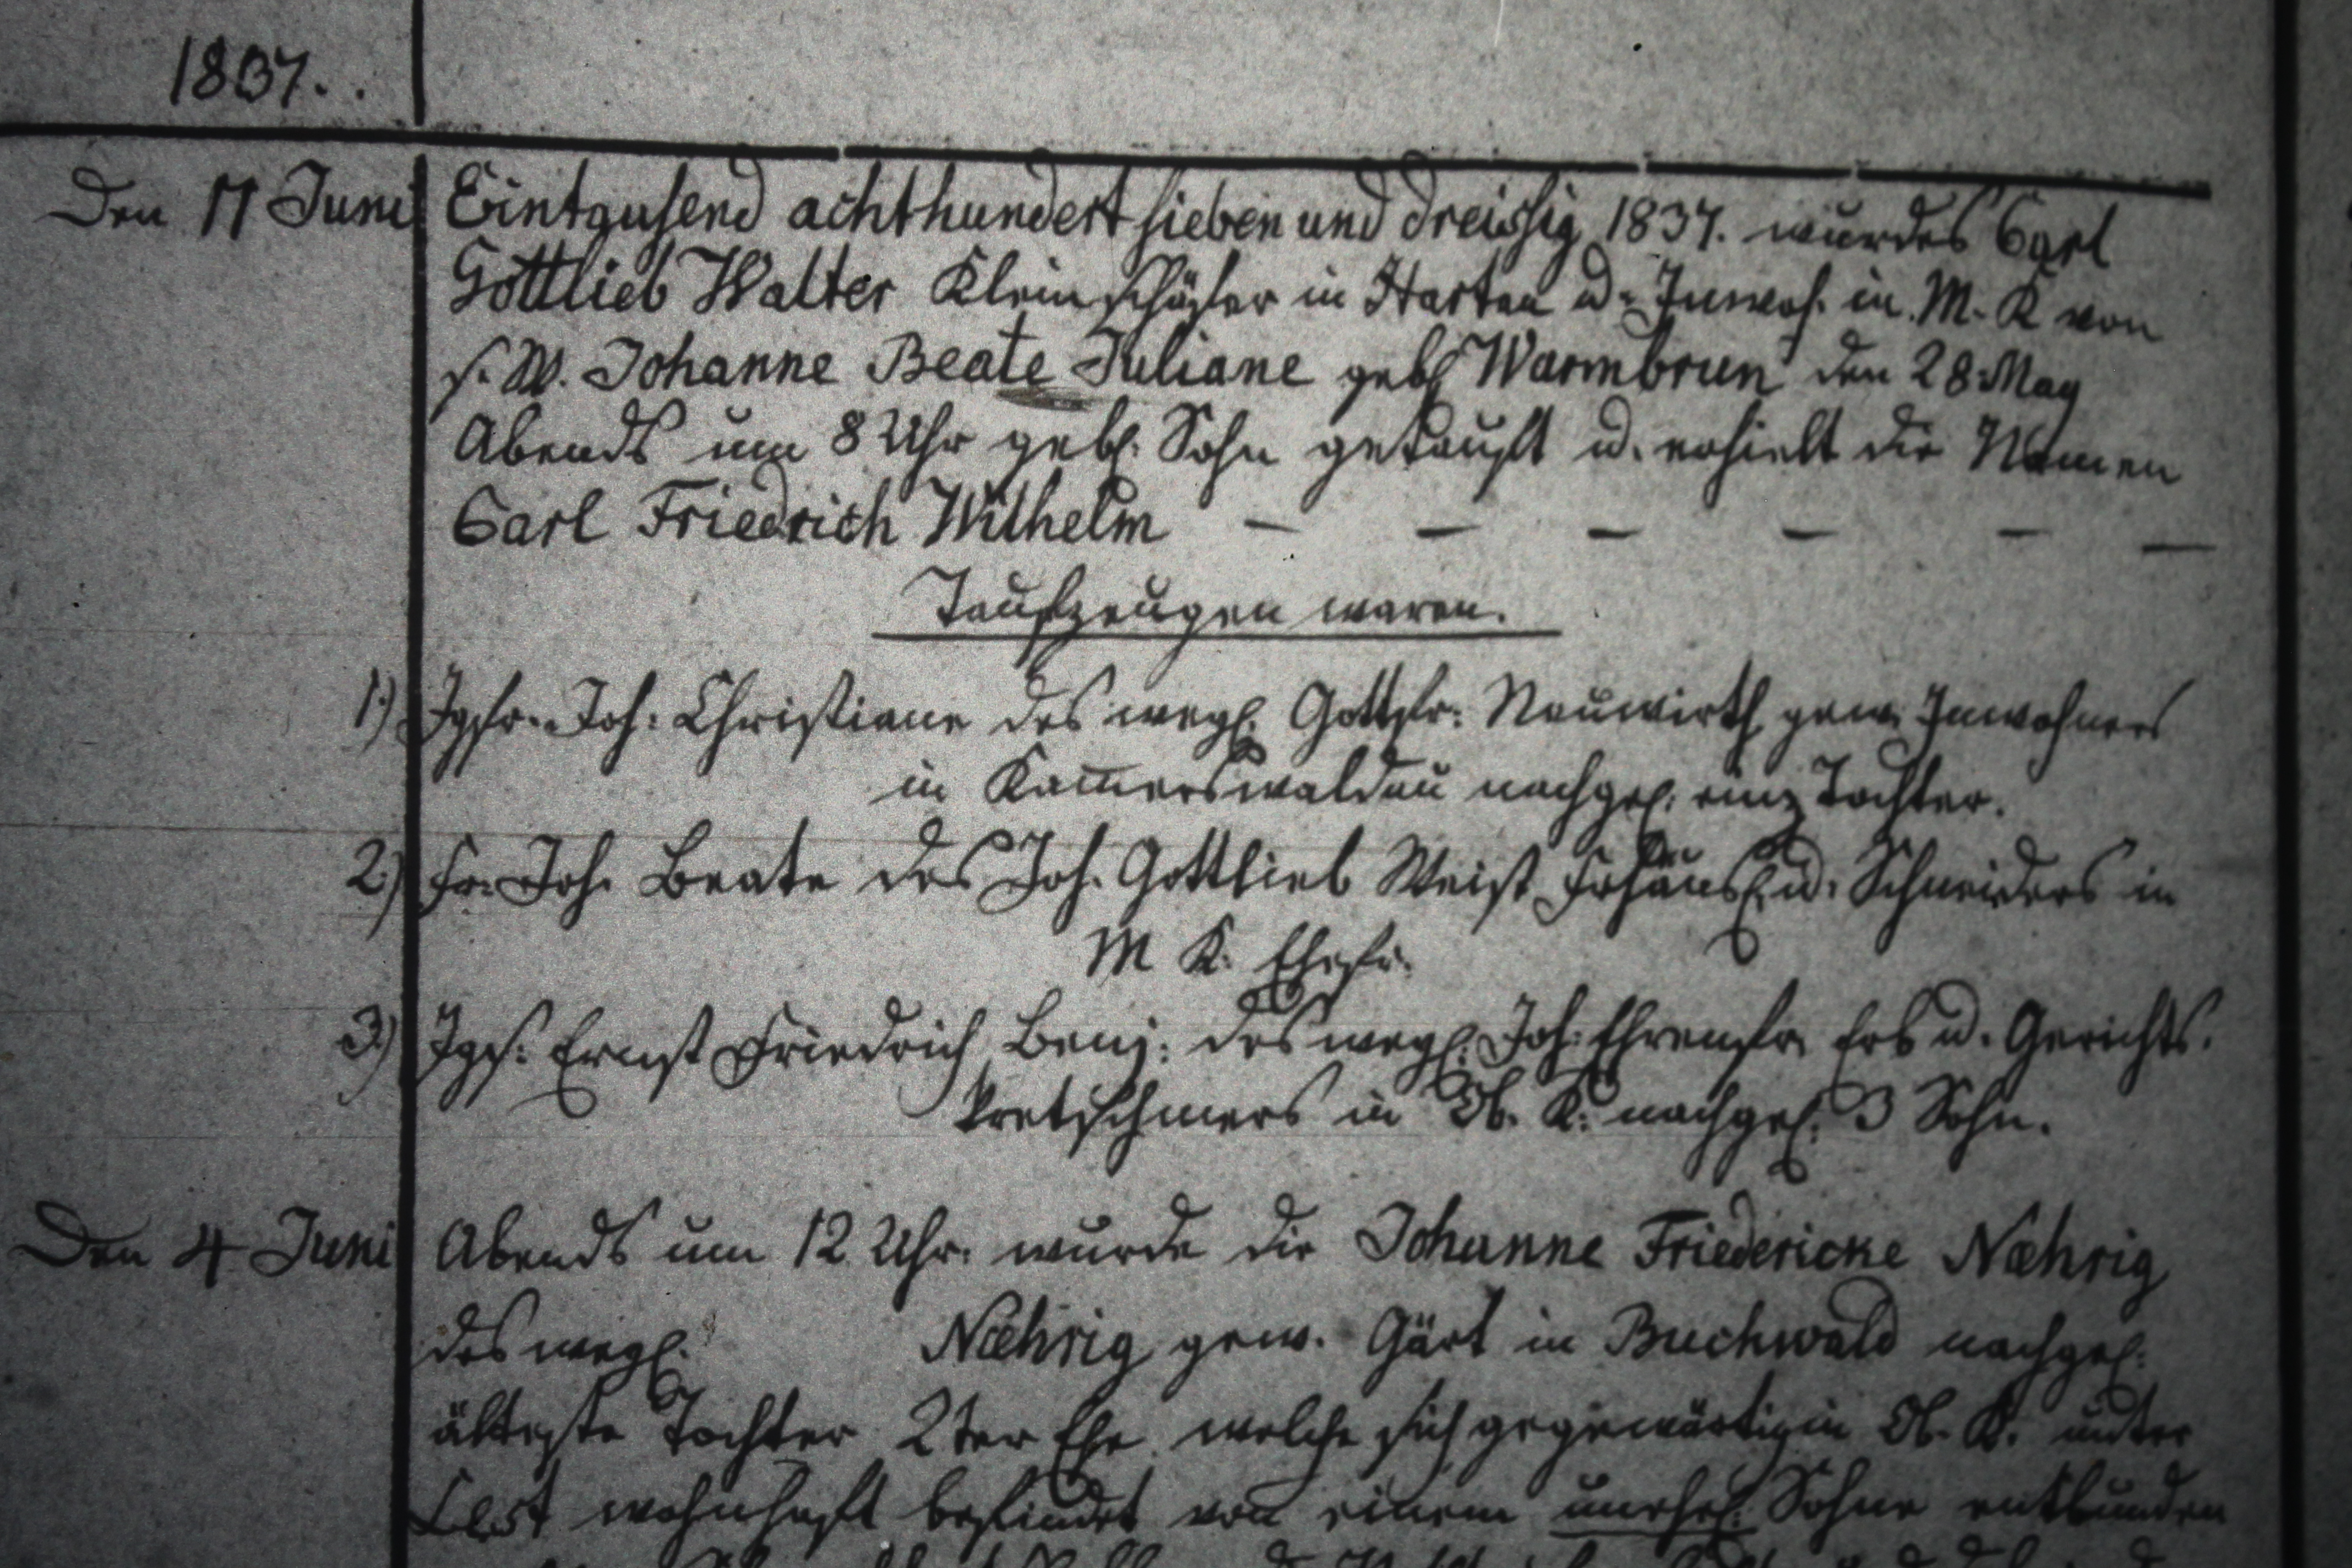 1837.
Den 17 Juni Eintausend achthundert sieben und dreissig 1837. wurde des Carl
Gottlieb Walter Kleinschäfer in Hartau u. Inwoh. in M. K von
s. W. Johanne Beate Juliane geb. Warmbrun den 28 May
Abends um 8 Uhr geb. Sohn getauft u. erhielt die Namen
Carl Friedrich Wilhelm — — — — — —
Taufzeugen waren.
1) Jgfr. Joh: Christiane des weyl. Gottfr: Neuwirth gew. Inwohners
in Kam̄erswaldau nachgel. einz Tochter.
2) Fr. Joh. Beate des Joh. Gottlieb Weist Frhäusl. u. Schneiders in
M K. Ehefr.
3) Jgs. Ernst Friedrich Benj: des weyl. Joh: Ehrenfr. Erb u. Gerichts.
kretschmers in Ob. K. nachgel. 3 Sohn.
Den 4 Juni Abends um 12 Uhr. wurde die Johanne Friedericke Næhrig
des weyl. Næhrig gew. Gärt in Buchwald nachgel.
älteste Tochter 2ter Ehe welche sich gegenwärtig in Ob. K. unter
wohnhaft befindet von einem unehel. Sohne entbunden